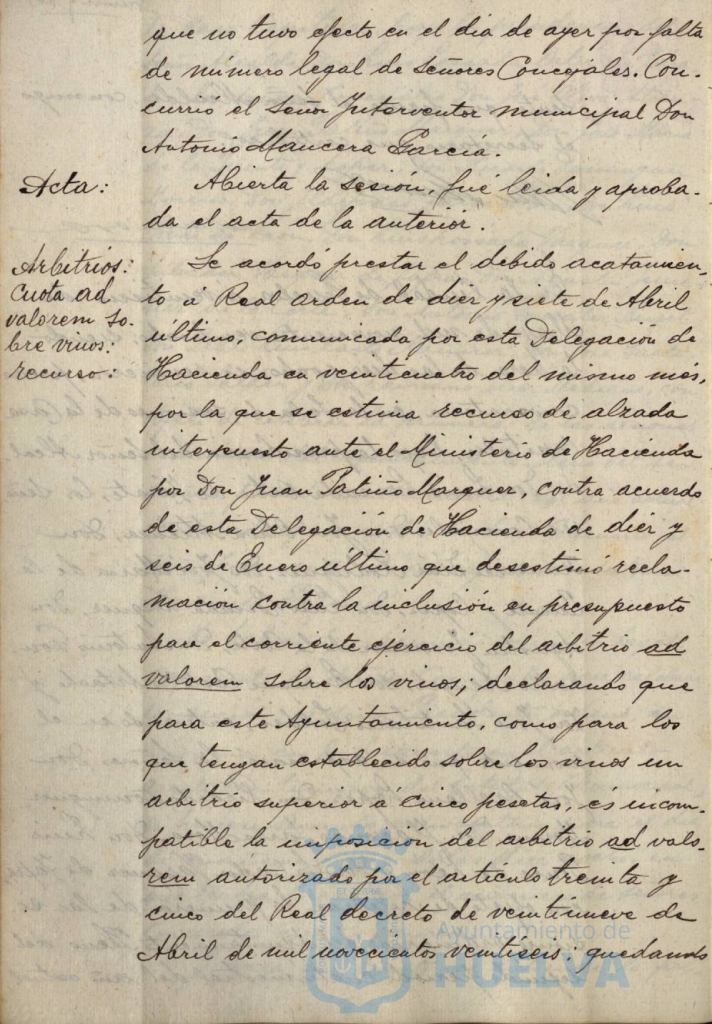 que no tuvo efecto en el dia de ayer por falta
de número legal de señores Concejales. Con-
currió el señor Interventor municipal Don
Antonio Mancera García.
Acta:
Abierta la sesión, fué leida y aproba-
da el acta de la anterior.
Arbitrios:
Cuota ad
valorem so-
bre vinos:
recurso:
Se acordó prestar el debido acatamien-
to á Real orden de diez y siete de Abril
último, comunicada por esta Delegación de
Hacienda en veinticuatro del mismo més,
por la que se estima recurso de alzada
interpuesto ante el Ministerio de Hacienda
por Don Juan Patiño Marquez, contra acuerdo
de esta Delegación de Hacienda de diez y
seis de Enero último que desestimó recla-
mación contra la inclusión en presupuesto
para el corriente ejercicio del arbitrio ad
valorem sobre los vinos; declarando que
para este Ayuntamiento, como para los
que tengan establecido sobre los vinos un
arbitrio superior á cinco pesetas, és incom-
patible la imposición del arbitrio ad valo-
rem autorizado por el artículo treinta y
cinco del Real decreto de veintinueve de
Abril de mil novecientos veintiseis; quedando
Ayuntamiento de
HUELVA